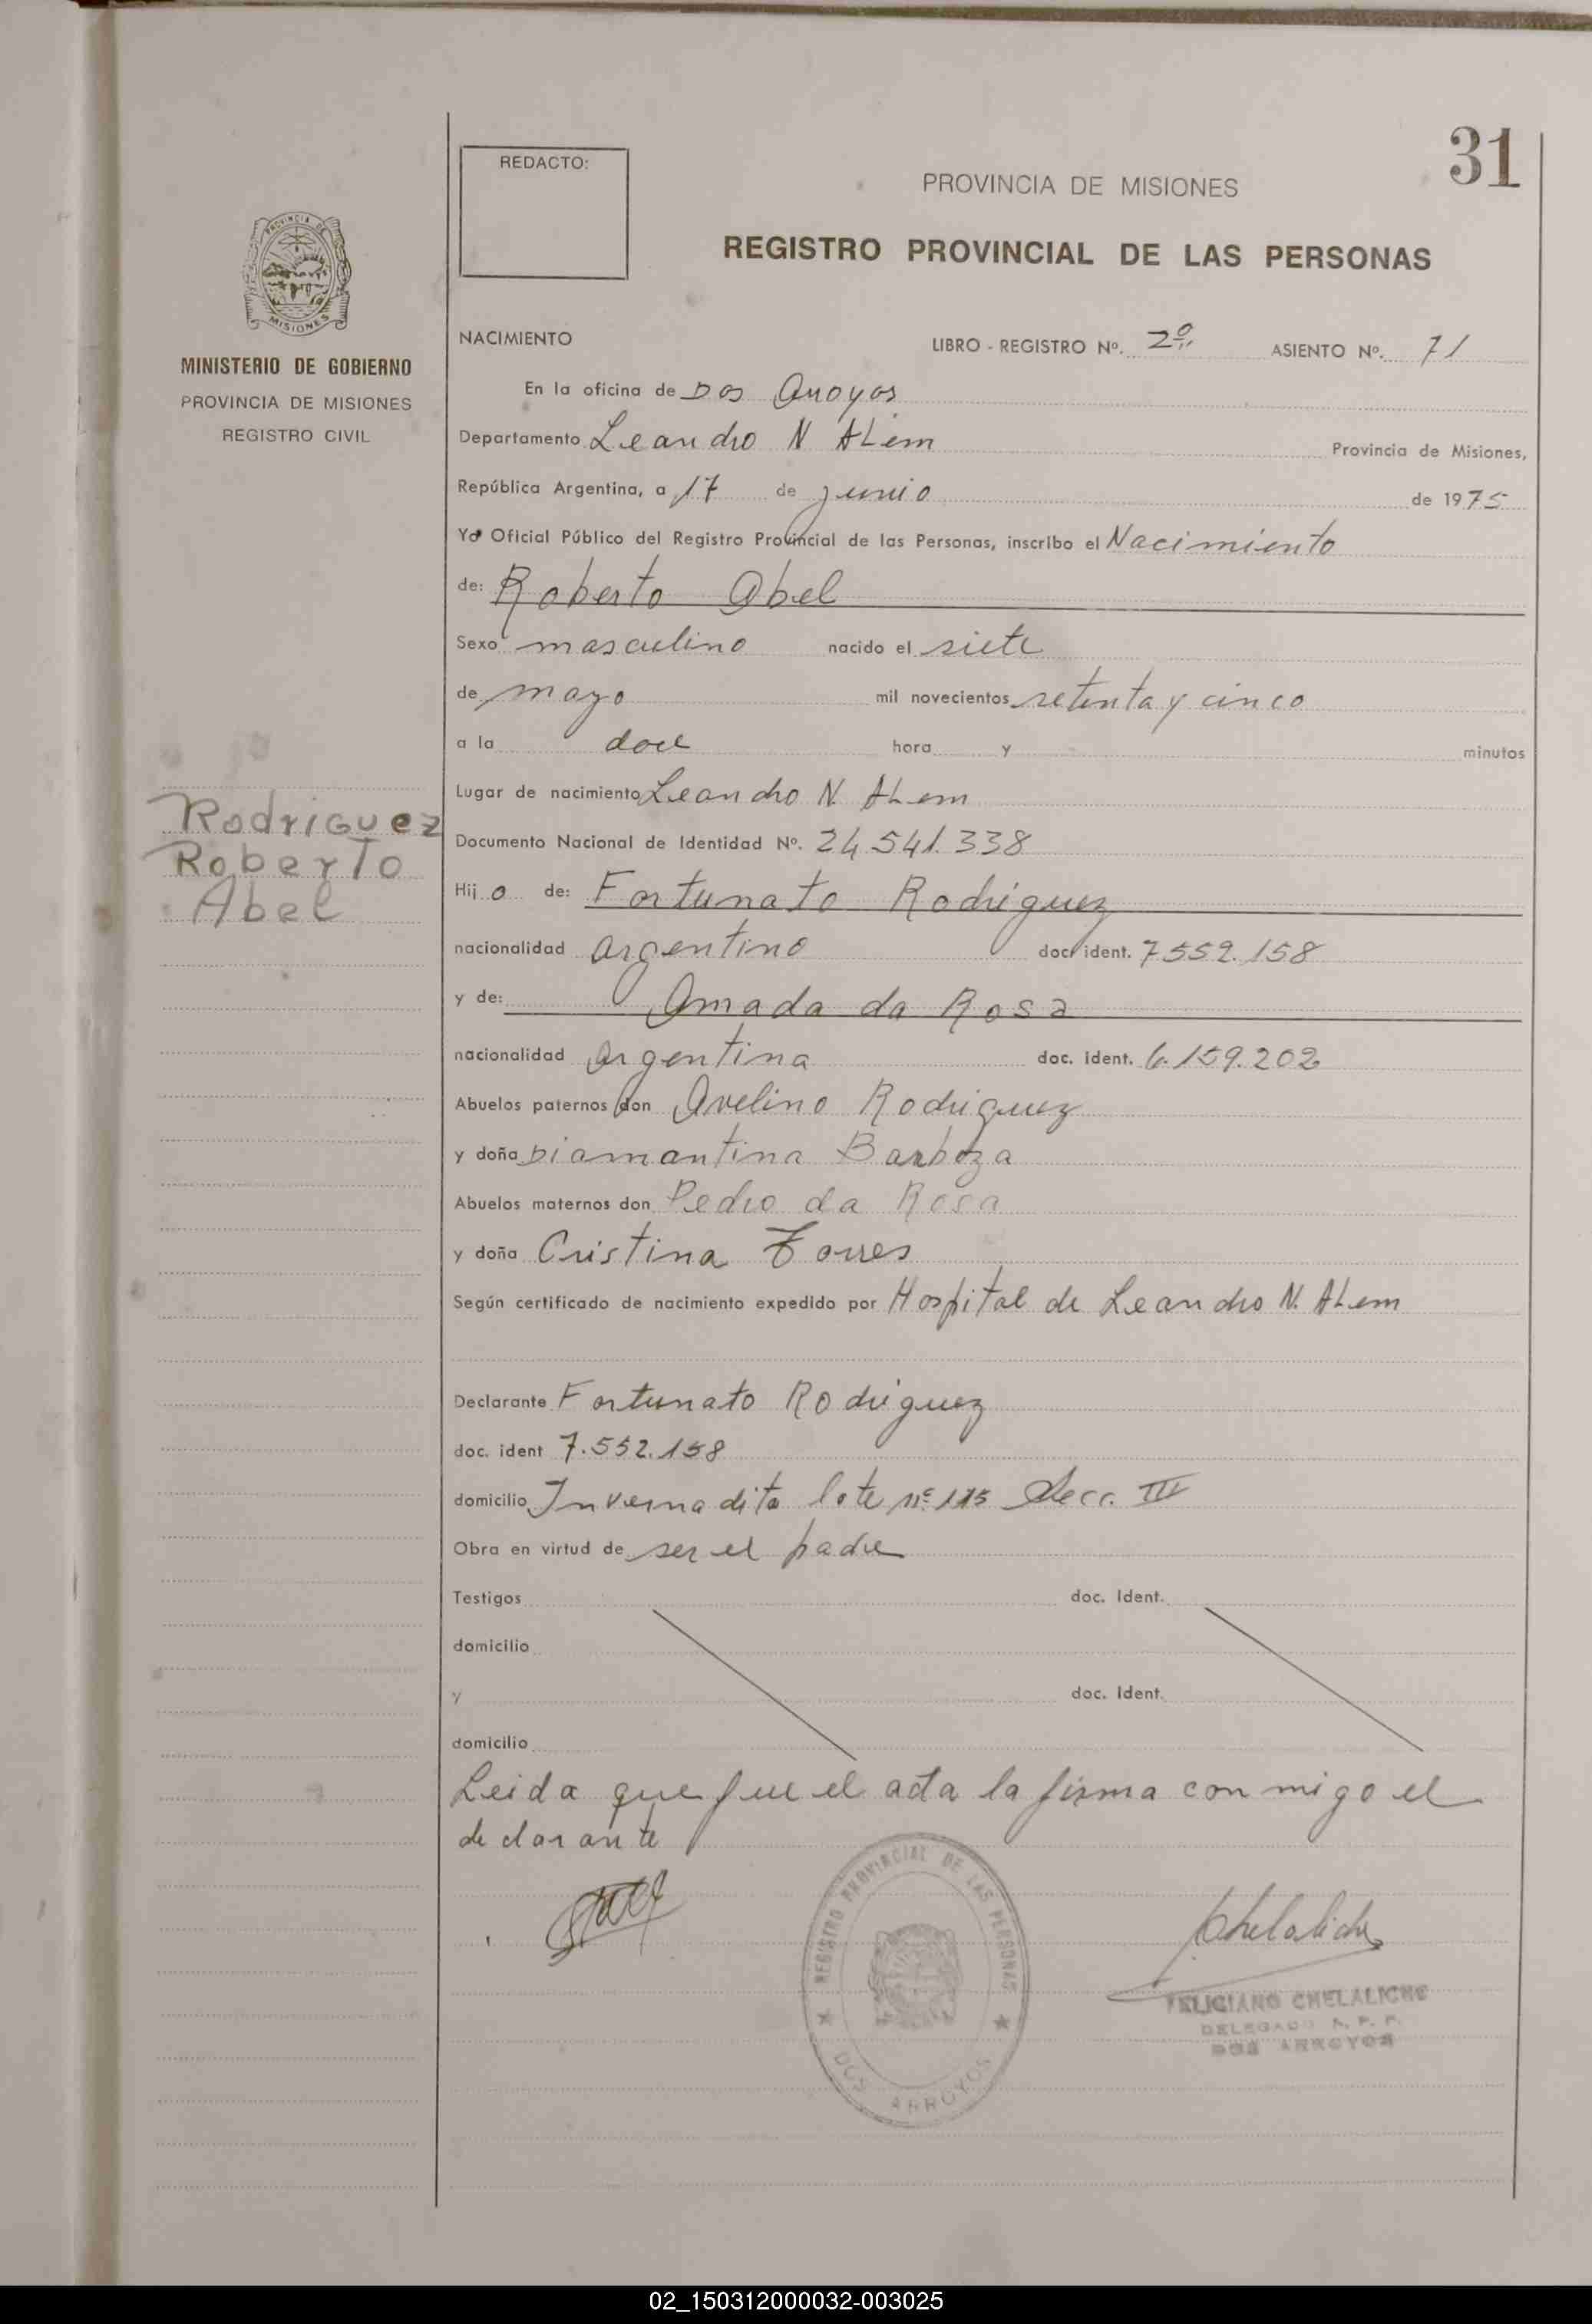 31
REDACTO:
PROVINCIA DE MISIONES
REGISTRO PROVINCIAL DE LAS PERSONAS
PROVINCIA DE
MISIONES
MINISTERIO DE GOBIERNO
PROVINCIA DE MISIONES
REGISTRO CIVIL
NACIMIENTO LIBRO - REGISTRO Nº. 2º ASIENTO Nº. 71
En la oficina de Dos Arroyos
Departamento Leandro N ALem Provincia de Misiones,
República Argentina, a 17 de junio de 1975
Yo Oficial Público del Registro Provincial de las Personas, inscribo el Nacimiento
de: Roberto Abel
Sexo masculino nacido el siete
de mayo mil novecientos setenta y cinco
a la doce hora y minutos
Lugar de nacimiento Leandro N. ALem
Rodriguez
Roberto
Abel
Documento Nacional de Identidad Nº. 24.541.338
Hijo de: Fortunato Rodriguez
nacionalidad argentino doc. ident. 7552.158
y de: Amada da Rosa
nacionalidad argentina doc. ident. 6.159.202
Abuelos paternos don Avelino Rodriguez
y doña Diamantina Barboza
Abuelos maternos don Pedro da Rosa
y doña Cristina Torres
Según certificado de nacimiento expedido por Hospital de Leandro N. ALem
Declarante Fortunato Rodriguez
doc. ident 7.552.158
domicilio Invernadita lote nº 115 Secc. III
Obra en virtud de ser el padre
Testigos doc. Ident.
domicilio
y doc. Ident.
domicilio
Leida que fue el acta la firma con migo el
declarante
REGISTRO PROVINCIAL DE LAS PERSONAS
DOS ARROYOS
Chelaliche
FELICIANO CHELALICHE
DELEGADO R. P. P.
DOS ARROYOS
02_150312000032-003025